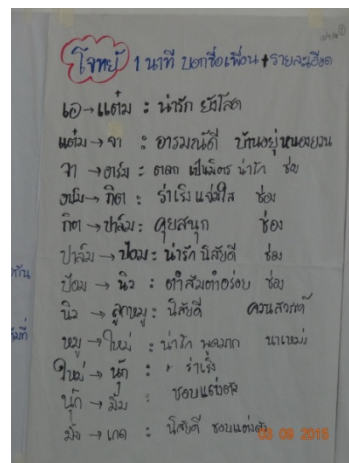 โจทย์ 1 นาที บอกชื่อเพื่อน + รายละเอียด
เอ → แต๋ม : น่ารัก ยังโสด
แต๋ม → จา : อารมณ์ดี บ้านอยู่หนองยวน
จา → อาร์ม : ตลก เป็นมิตร น่ารัก ช่อง
อาร์ม → กิต : ร่าเริง แจ่มใส ช่อง
กิต → ปาล์ม : คุยสนุก ช่อง
ปาล์ม → ป้อม : น่ารัก นิสัยดี ช่อง
ป้อม → นิว : ตำส้มตำอร่อย ช่อง
นิว → ลูกหมู : นิสัยดี ควนสวรรค์
หมู → ใหม่ : น่ารัก พูดมาก นาเหมร
ใหม่ → นุ้ก : " ร่าเริง
นุ้ก → มิ้ม : ชอบแต่งตัว
→ เกด : นิสัยดี ชอบแต่งตัว
03 09 2015